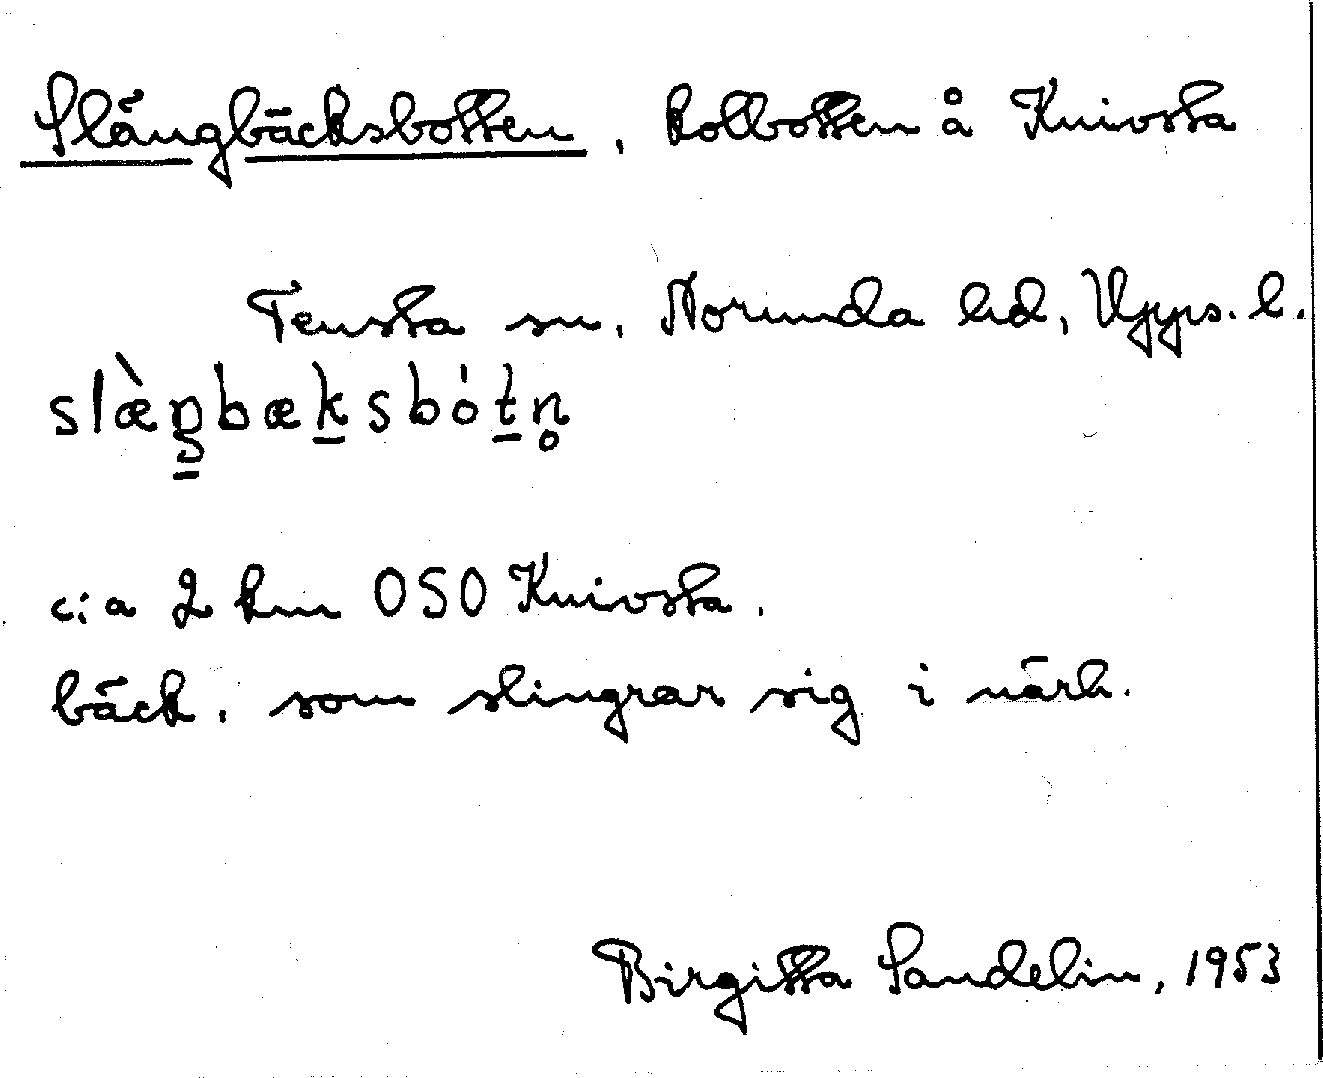 Slängbäcksbotten, kolbotten å Knivsta
Tensta sn, Norunda hd, Upps. l.
slæ̀ŋbæksbótn̥
c:a 2 km OSO Knivsta.
bäck, som slingrar sig i närh.
Birgitta Sandelin, 1953